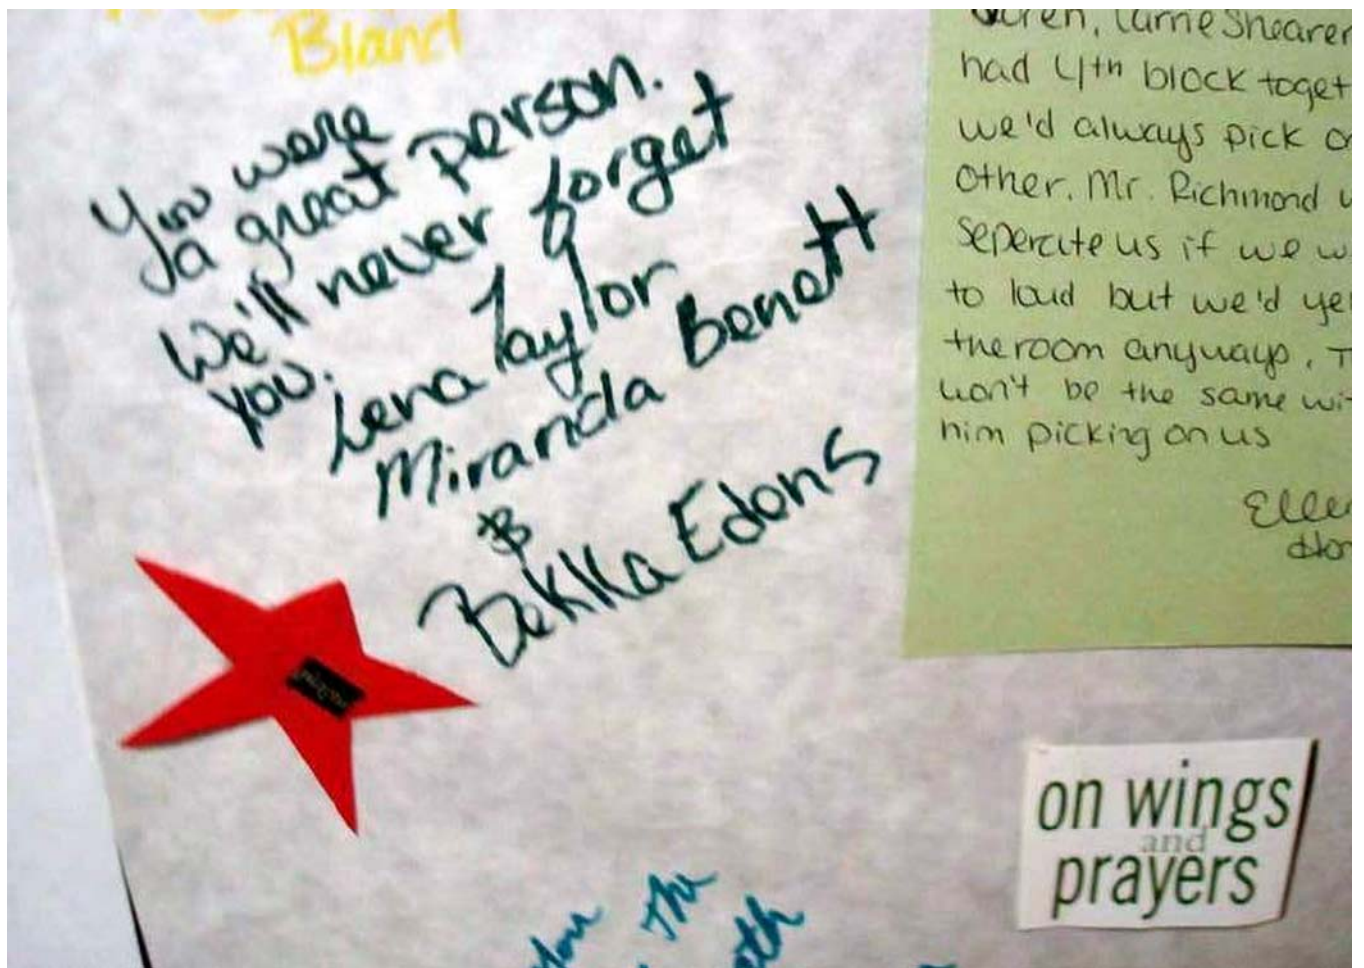 Bland
You were
a great person.
We'll never forget
you.
Lena Taylor
Miranda Benett
&
Bekka Edons
had 4th block toget
we'd always pick on
other. Mr. Richmond w
seperate us if we w
to loud but we'd yel
the room anyways. T
won't be the same wit
him picking on us
Ellen
on wings
and
prayers
You
The